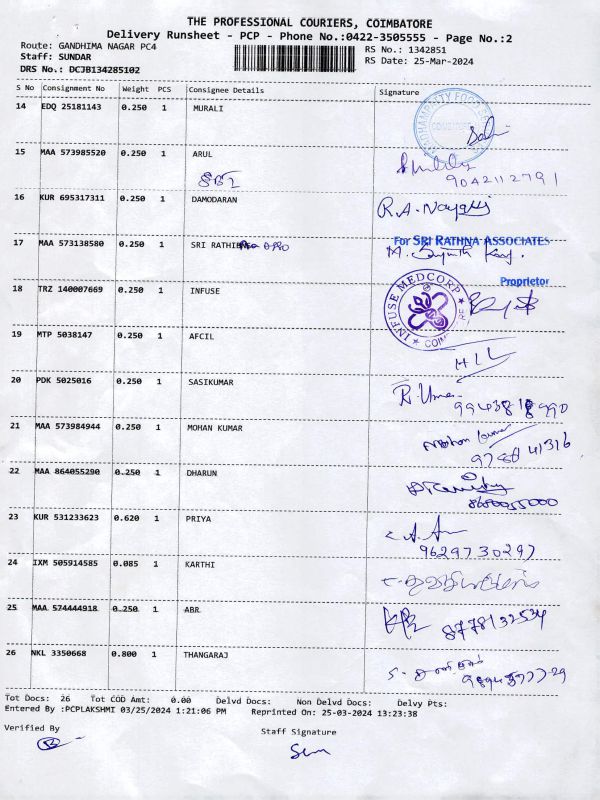 THE PROFESSIONAL COURIERS, COIMBATORE
Delivery Runsheet - PCP - Phone No.:0422-3505555 - Page No.:2
Route: GANDHIMA NAGAR PC4 RS No.: 1342851
Staff: SUNDAR RS Date: 25-Mar-2024
DRS No.: DCJB134285102
S No Consignment No Weight PCS Consignee Details Signature
14 EDQ 25181143 0.250 1 MURALI
15 MAA 573985520 0.250 1 ARUL
9042112791
16 KUR 695317311 0.250 1 DAMODARAN R.A. Nayagi
17 MAA 573138580 0.250 1 SRI RATHI For SRI RATHNA ASSOCIATES
Proprietor
18 TRZ 140007669 0.250 1 INFUSE INFUSE MEDCORP
19 MTP 5038147 0.250 1 AFCIL
HLL
20 PDK 5025016 0.250 1 SASIKUMAR R. Uma
21 MAA 573984944 0.250 1 MOHAN KUMAR Mohan Kumar
22 MAA 864055290 0.250 1 DHARUN
8680055000
23 KUR 531233623 0.620 1 PRIYA
9629730297
24 IXM 505914585 0.085 1 KARTHI
25 MAA 574444918 0.250 1 ABR 8778132534
26 NKL 3350668 0.800 1 THANGARAJ
Tot Docs: 26 Tot COD Amt: 0.00 Delvd Docs: Non Delvd Docs: Delvy Pts:
Entered By :PCPLAKSHMI 03/25/2024 1:21:06 PM Reprinted On: 25-03-2024 13:23:38
Verified By Staff Signature